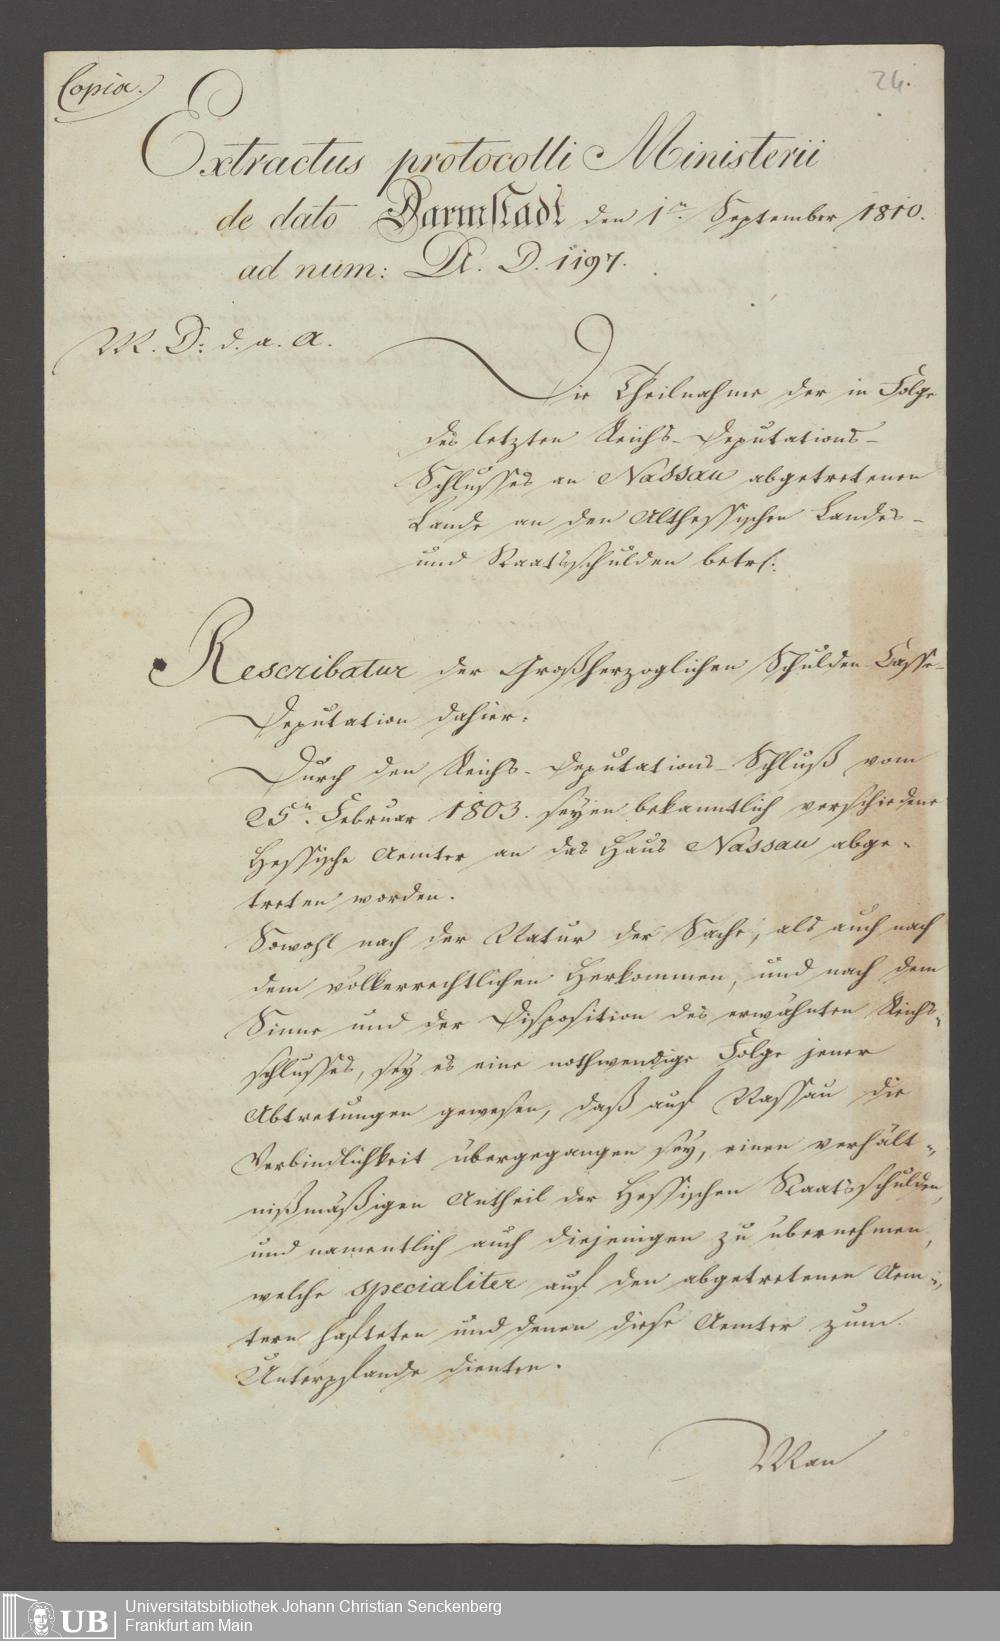 Copia.
26.
Extractus protocolli Ministerii
de dato Darmstadt den 1n. September 1810.
ad num: D. 1197.
M. D. d. a. A.
Die Theilnahme der in Folge
des letzten Reichs-Deputations-
Schlusses an Nassau abgetretenen
Lande an den Althessischen Landes-
und Staatsschulden betrf:
Rescribatur der Großherzoglichen Schulden Casse-
Deputation dahier.
Durch den Reichs-Deputations-Schluß vom
25n. Februar 1803. seyen bekanntlich verschiedene
Hessische Aemter an das Haus Nassau abge-
treten worden.
Sowohl nach der Natur der Sache, als auch nach
dem völkerrechtlichen Herkommen, und nach dem
Sinne und der Disposition des erwähnten Reichs-
schlusses, sey es eine nothwendige Folge jener
Abtretungen gewesen, daß auf Nassau die
Verbindlichkeit übergegangen sey, einen verhält-
nißmäßigen Antheil der Hessischen Staatsschulden,
und namentlich auch diejenigen zu übernehmen,
welche specialiter auf den abgetretenen Aem-
tern hafteten und denen diese Aemter zum
Unterpfande dienten.
Man
UB Universitätsbibliothek Johann Christian Senckenberg
Frankfurt am Main